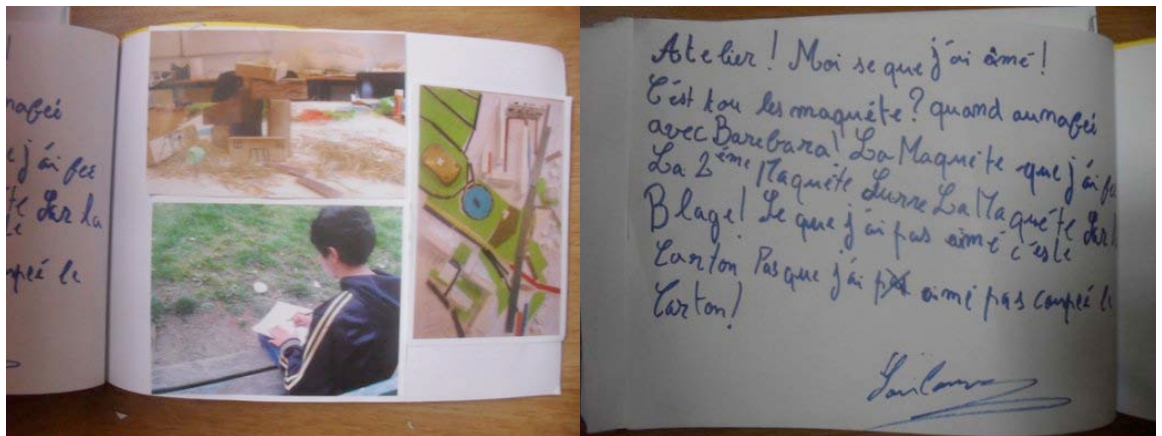 nafeé
e j'ai fee
te sur la
le
oupeé le
Atelier! Moi se que j'ai âmé!
C'est tou les maquéte? quand aunafeé
avec Barebara! La Maquéte que j'ai fe
La 2ème Maquéte Surre La Maquéte Sur l
Blage! Se que j'ai pas aimé c'est le
Carton Pasque j'ai aimé pas coupeé le
Carton!